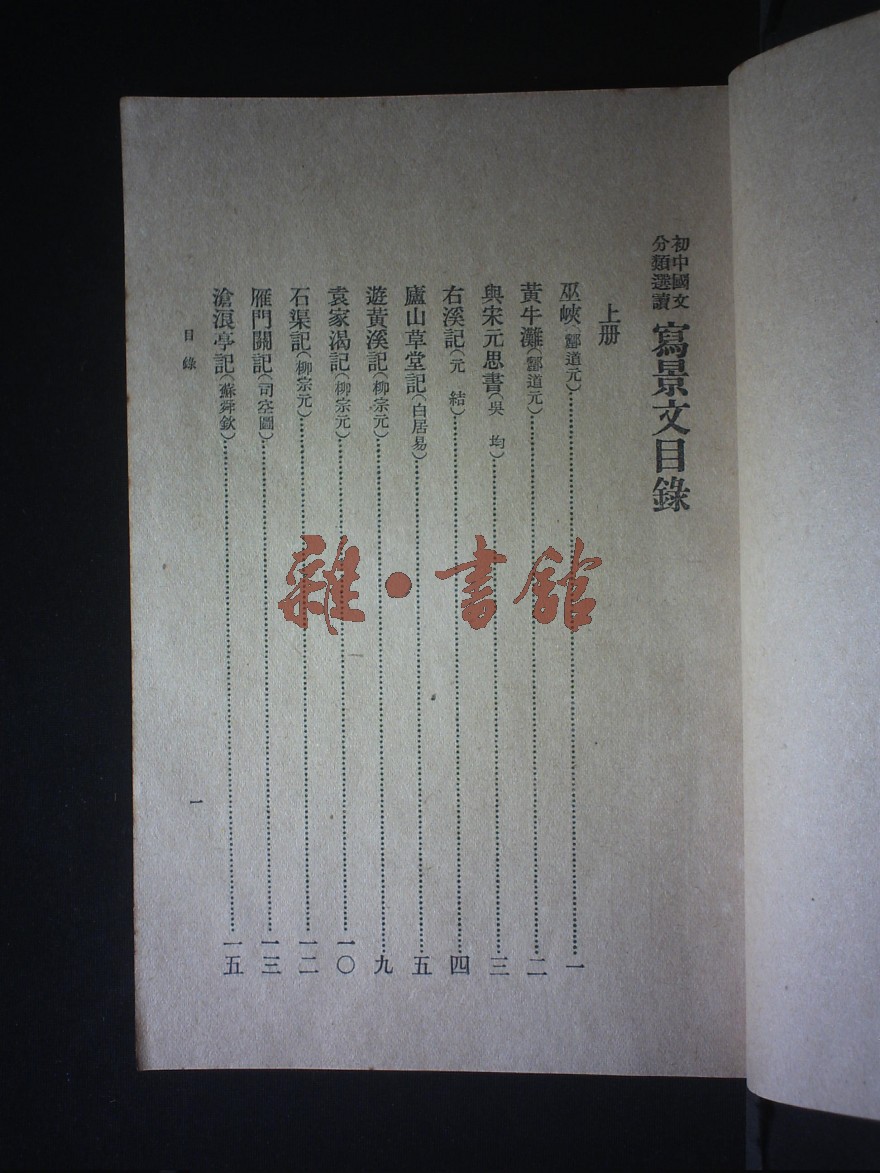 初中國文
分類選讀
寫景文目錄
上册
巫峽（酈道元）……一
黃牛灘（酈道元）……二
與宋元思書（吳　均）……三
右溪記（元　結）……四
廬山草堂記（白居易）……五
遊黃溪記（柳宗元）……九
袁家渴記（柳宗元）……一〇
石渠記（柳宗元）……一二
雁門關記（司空圖）……一三
滄浪亭記（蘇舜欽）……一五
目錄
一
雜·書館